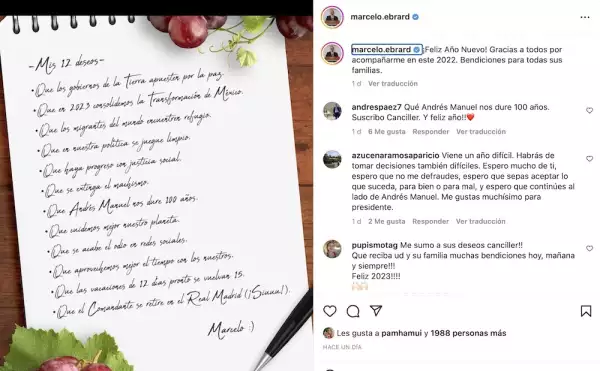 - Mis 12 deseos -
• Que los gobiernos de la Tierra apuesten por la paz.
• Que en 2023 consolidemos la Transformación de México.
• Que los migrantes del mundo encuentren refugio.
• Que en nuestra política se juegue limpio.
• Que haya progreso con justicia social.
• Que se extinga el machismo.
• Que Andrés Manuel nos dure 100 años.
• Que cuidemos mejor nuestro planeta.
• Que se acabe el odio en redes sociales.
• Que aprovechemos mejor el tiempo con los nuestros.
• Que las vacaciones de 12 días pronto se vuelvan 15.
• Que el Comandante se retire en el Real Madrid (¡Siuuu!).
Marcelo :)
marcelo.ebrard
marcelo.ebrard ¡Feliz Año Nuevo! Gracias a todos por
acompañarme en este 2022. Bendiciones para todas sus
familias.
1 d Ver traducción
andrespaez7 Qué Andrés Manuel nos dure 100 años.
Suscribo Canciller. Y feliz año!!
1 d 6 Me gusta Responder Ver traducción
azucenaramosaparicio Viene un año difícil. Habrás de
tomar decisiones también difíciles. Espero mucho de ti,
espero que no me defraudes, espero que sepas aceptar lo
que suceda, para bien o para mal, y espero que continúes al
lado de Andrés Manuel. Me gustas muchísimo para
presidente.
1 d 2 Me gusta Responder Ver traducción
pupismotag Me sumo a sus deseos canciller!!
Que reciba ud y su familia muchas bendiciones hoy, mañana
y siempre!!!
Feliz 2023!!!!
Les gusta a pamhamui y 1988 personas más
HACE UN DÍA